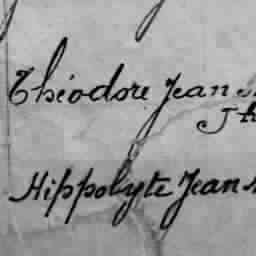 Théodore Jean
Hippolyte Jean